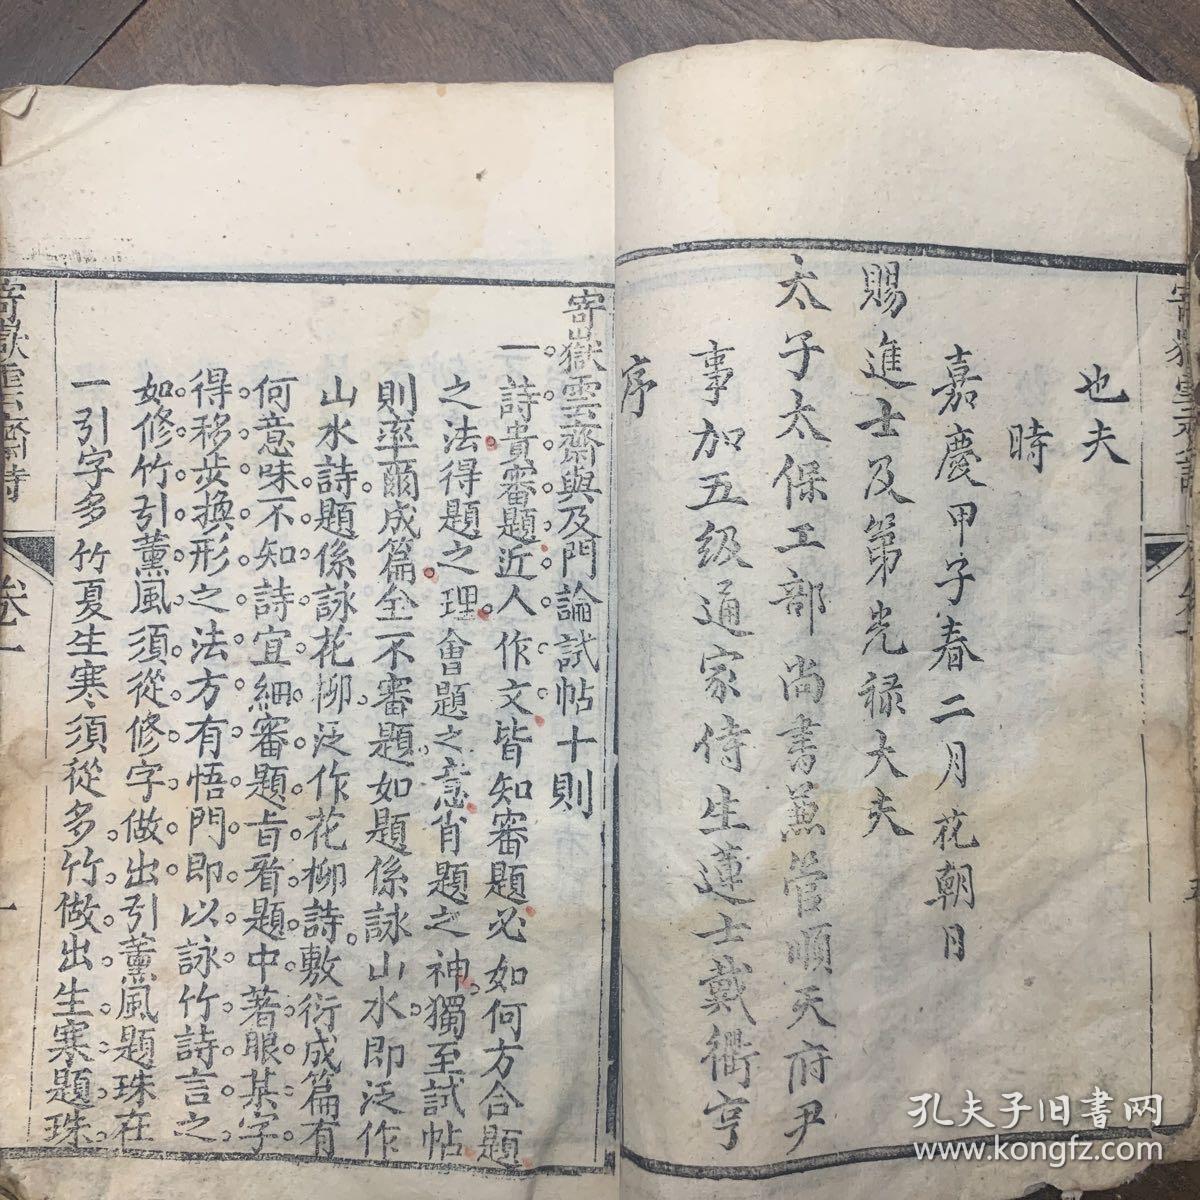 也夫
時
嘉慶甲子春二月花朝日
賜進士及第光祿大夫
太子太保工部尚書兼管順天府尹
事加五級通家侍生蓮士戴衢亨
序
寄嶽雲齋與及門論試帖十則
一詩貴審題近人作文皆知審題必如何方合題
之法得題之理會題之意肖題之神獨至試帖
則率爾成篇全不審題如題係詠山水即泛作
山水詩題係詠花柳泛作花柳詩敷衍成篇有
何意味不知詩宜細審題旨看題中著眼某字
得移步換形之法方有悟門即以詠竹詩言之
如修竹引薰風須從修字做出引薰風題珠在
一引字多竹夏生寒須從多竹做出生寒題珠
寄嶽雲齋詩
卷一
一
孔夫子旧書网
www.kongfz.com